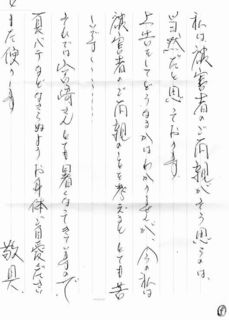 私は被害者のご両親がそう思うのは、
当然だと思っております。
上告をしてどうなるかはわかりませんが、今の私は
被害者のご両親のことを考えるととても苦
しいです……
それでは宮崎さんとても暑くなってきていますので
夏バテなどならぬようお身体ご自愛ください
また便ります
敬具